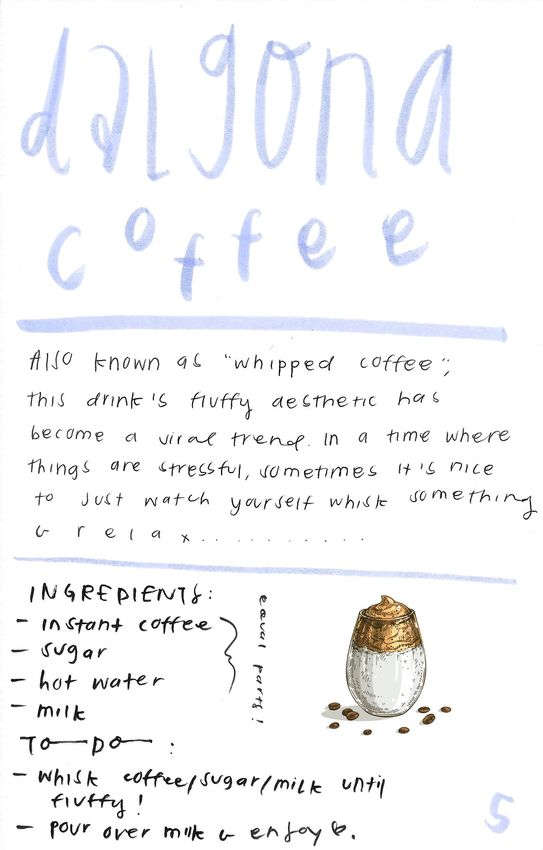 dalgona
coffee
Also known as "whipped coffee",
this drink's fluffy aesthetic has
become a viral trend. In a time where
things are stressful, sometimes it's nice
to just watch yourself whisk something
& relax..........
INGREDIENTS:
- instant coffee
- sugar
- hot water
equal parts!
- milk
TO-DO:
- whisk coffee/sugar/milk until
fluffy!
- pour over milk & enjoy ♡.
5